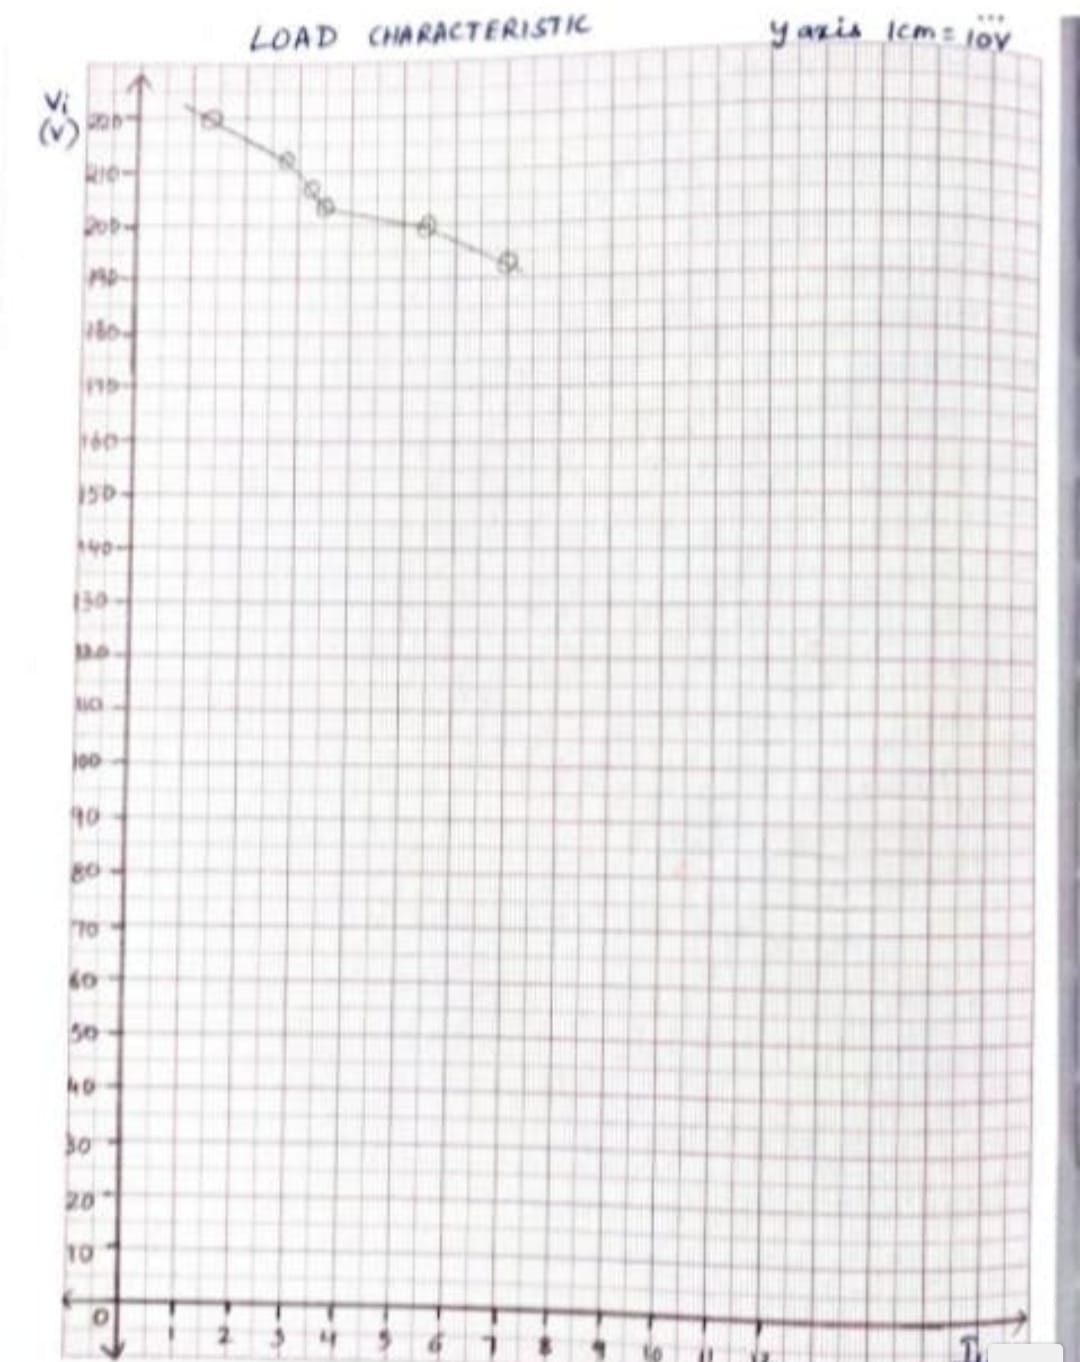 LOAD CHARACTERISTIC
y axis 1cm = 10V
Vi
(V)
220
210
200
190
180
170
160
150
140
130
120
110
100
90
80
70
60
50
40
30
20
10
0 1 2 3 4 5 6 7 8 9 10 11 12